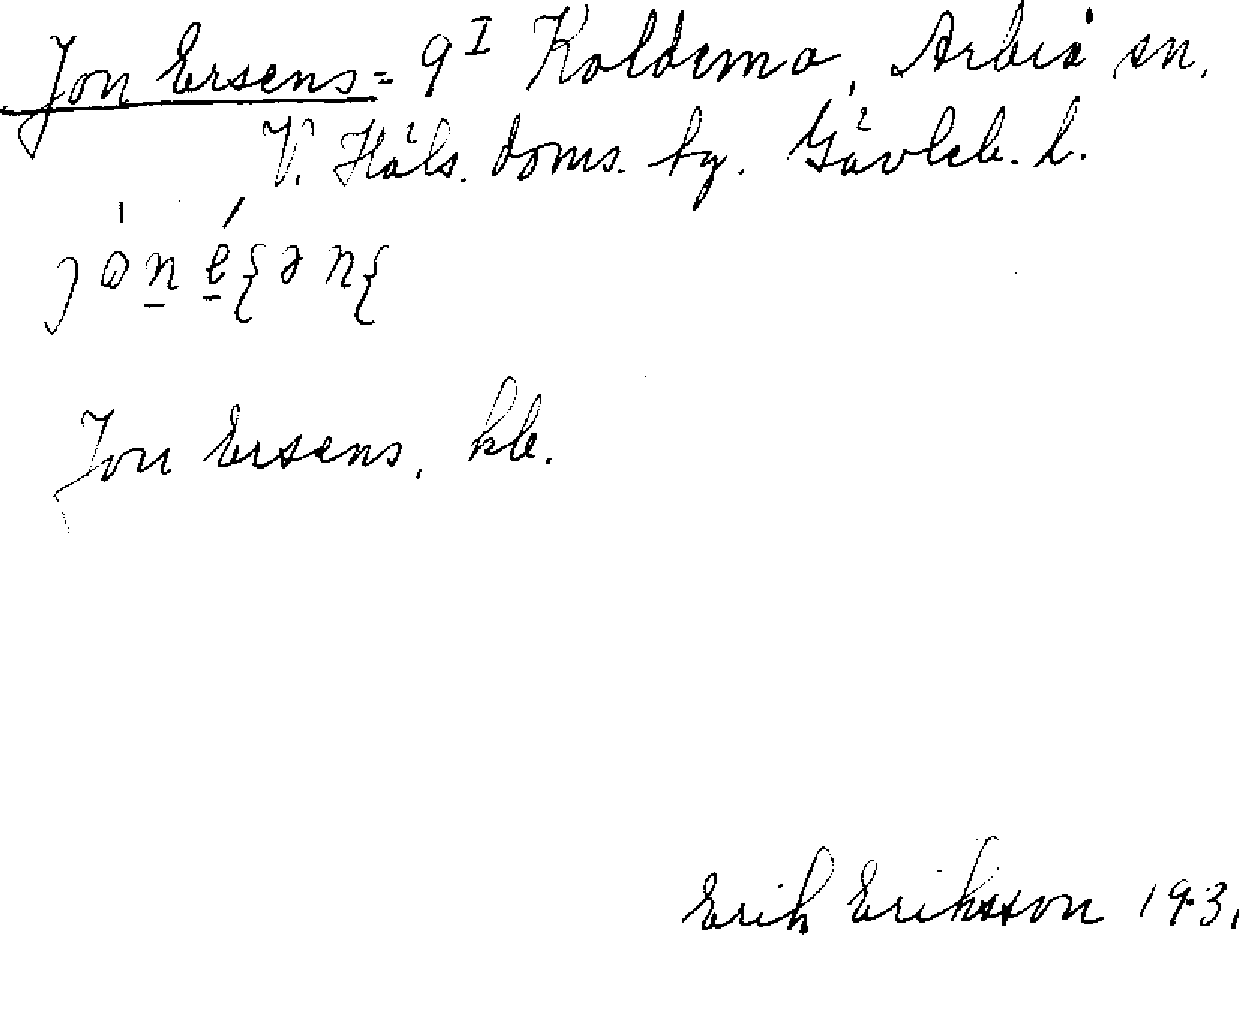 Jon Ersens= 9 I Koldemo, Arbrå sn.
V. Häls. doms. tg. Gävleb. l.
Jon Ersens, hb.
Erik Eriksson 193